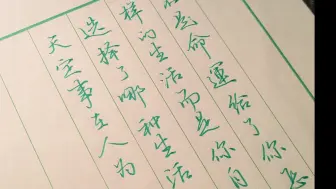 是命運給了你怎
样的生活而是你自
选择了哪种生活
天定事在人为